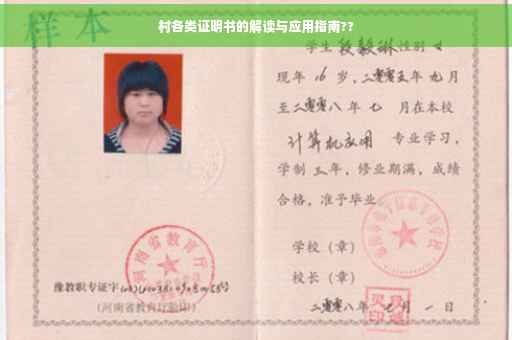 村各类证明书的解读与应用指南??
样本
学生 段毅琳 性别 女
现年 16 岁,二零零五年 九月
至二零零八年 七 月在本校
计算机应用 专业学习,
学制 三年,修业期满,成绩
合格,准予毕业
学校(章)
校长(章)
二零零八年 七月 一日
河南省教育厅
豫教职专证字
(河南省教育厅验印)